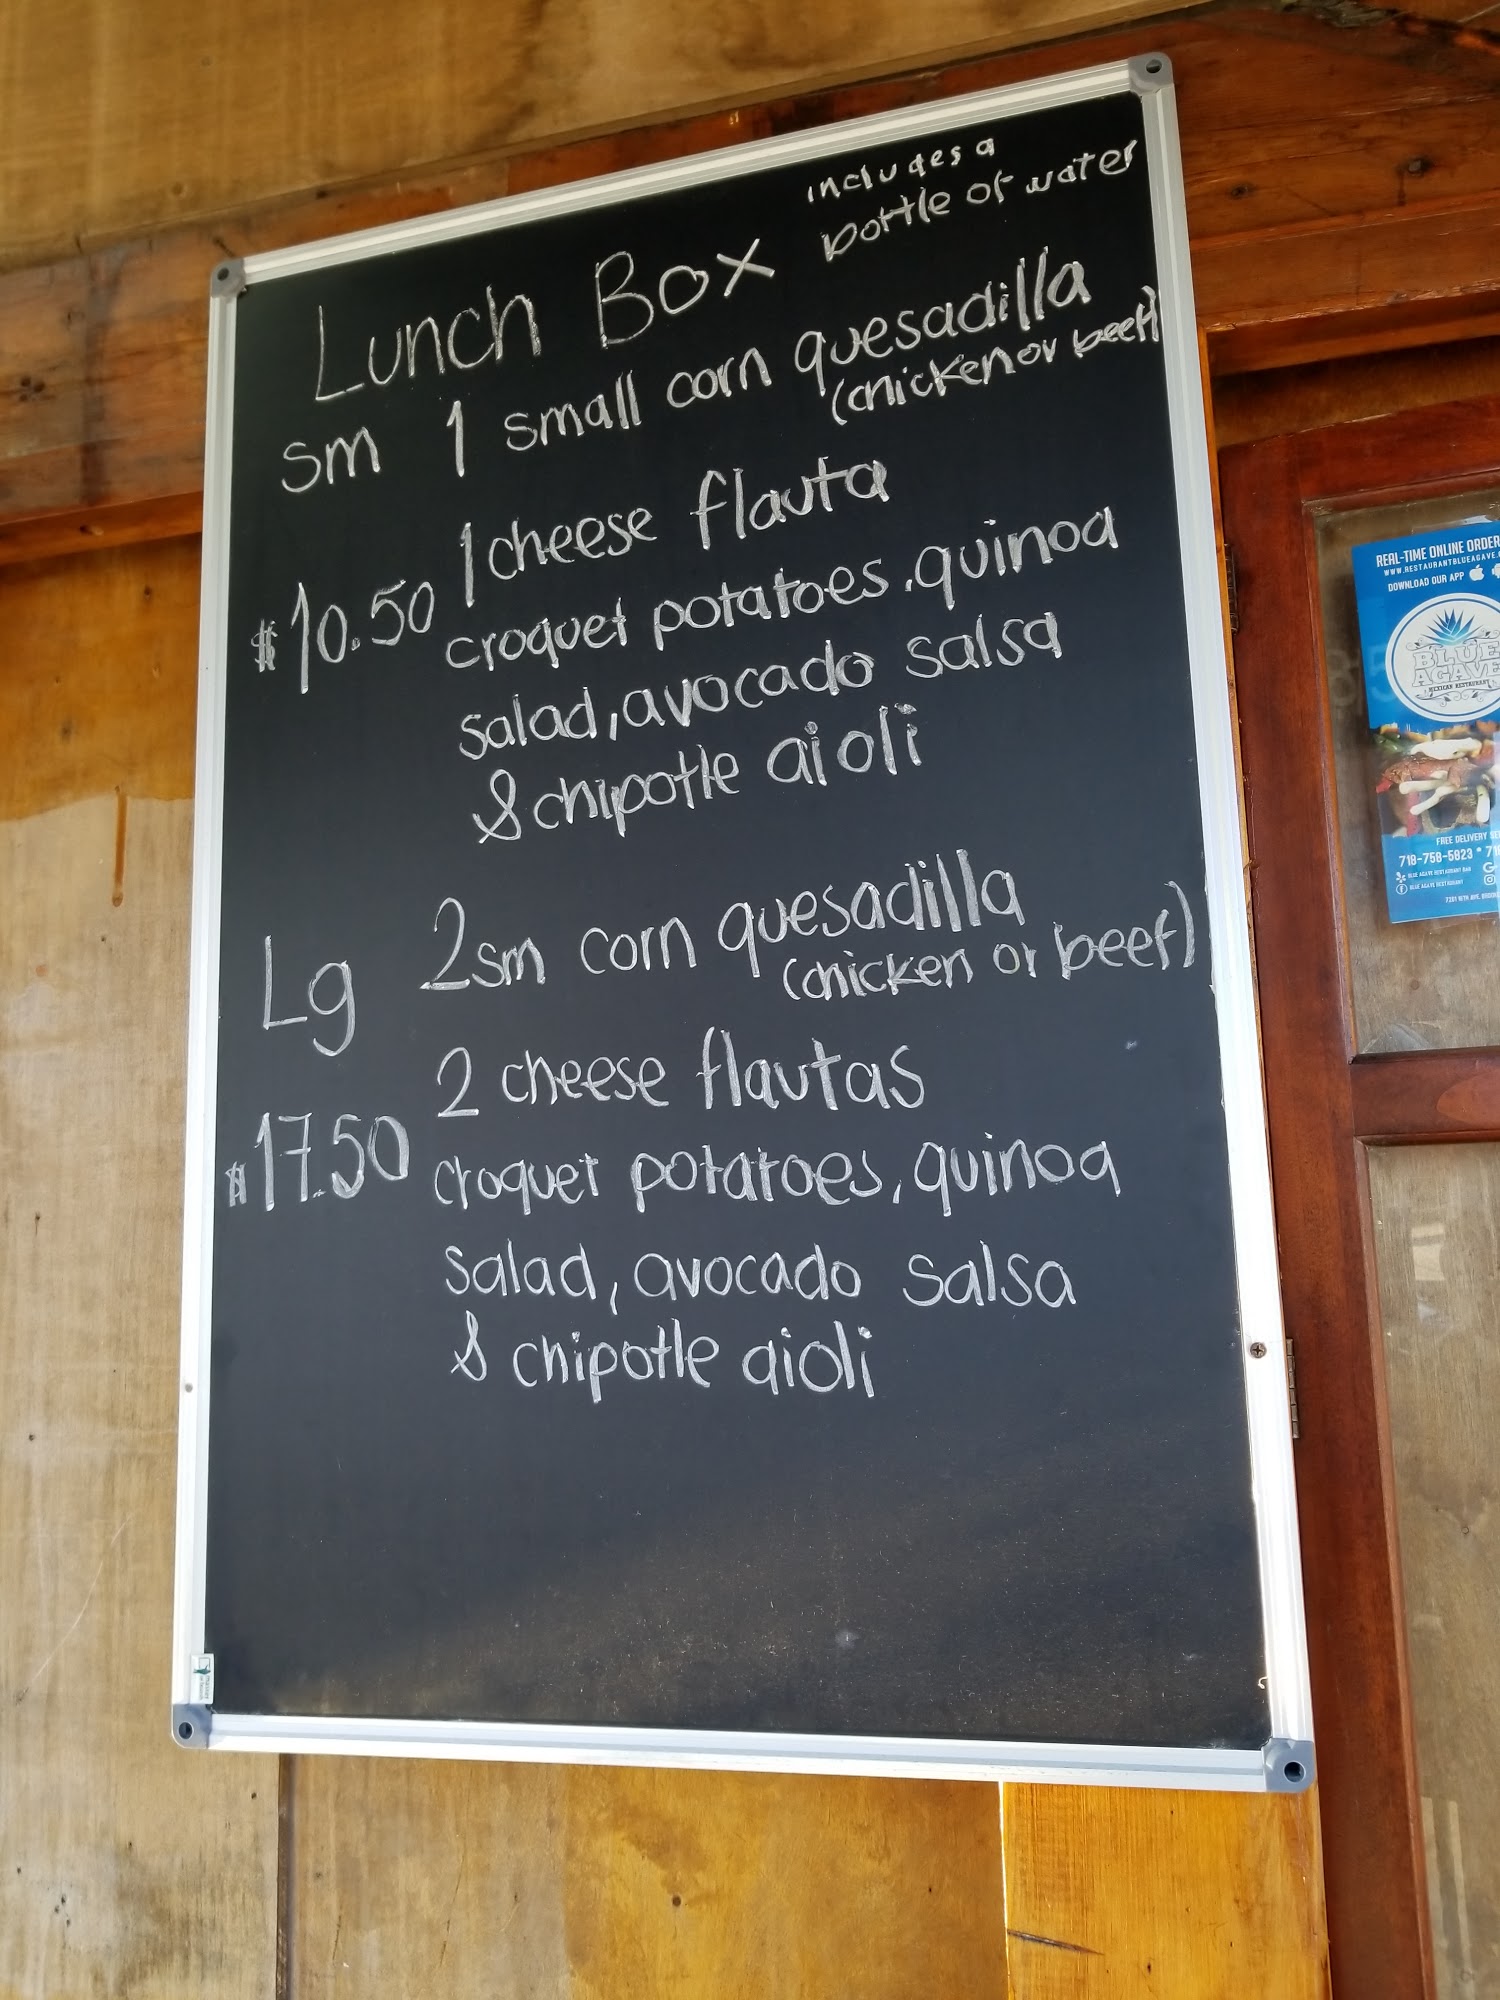 includes a
bottle of water
Lunch Box
sm 1 small corn quesadilla
(chicken or beef)
1 cheese flauta
$10.50 croquet potatoes, quinoa
salad, avocado salsa
& chipotle aioli
Lg 2 sm corn quesadilla
(chicken or beef)
2 cheese flautas
$17.50 croquet potatoes, quinoa
salad, avocado salsa
& chipotle aioli
REAL-TIME ONLINE ORDER
WWW.RESTAURANTBLUEAGAVE.
DOWNLOAD OUR APP
BLUE
AGAVE
MEXICAN RESTAURANT
FREE DELIVERY
718-758-5823 * 71
BLUE AGAVE RESTAURANT BAR
BLUE AGAVE RESTAURANT